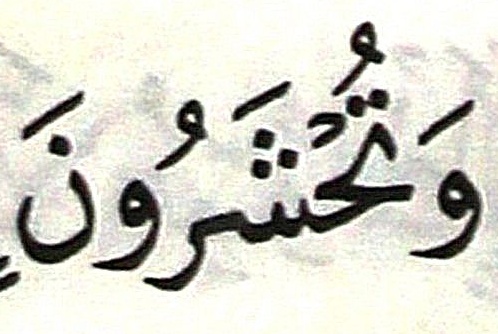 وَتُحْشَرُونَ